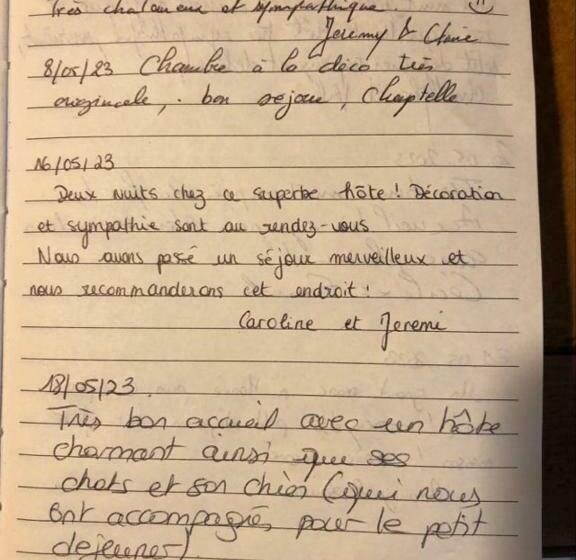 très chaleureux et sympathique.
Jeremy & Claire
8/05/23 Chambre à la déco très
originale, . bon sejour, Chaptelle
16/05/23
Deux nuits chez ce superbe hôte ! Décoration
et sympathie sont au rendez-vous
Nous avons passé un séjour merveilleux et
nous recommanderons cet endroit !
Caroline et Jeremi
18/05/23.
Très bon accueil avec un hôte
charmant ainsi que ses
chats et son chien (qui nous
ont accompagnés pour le petit
dejeuner)